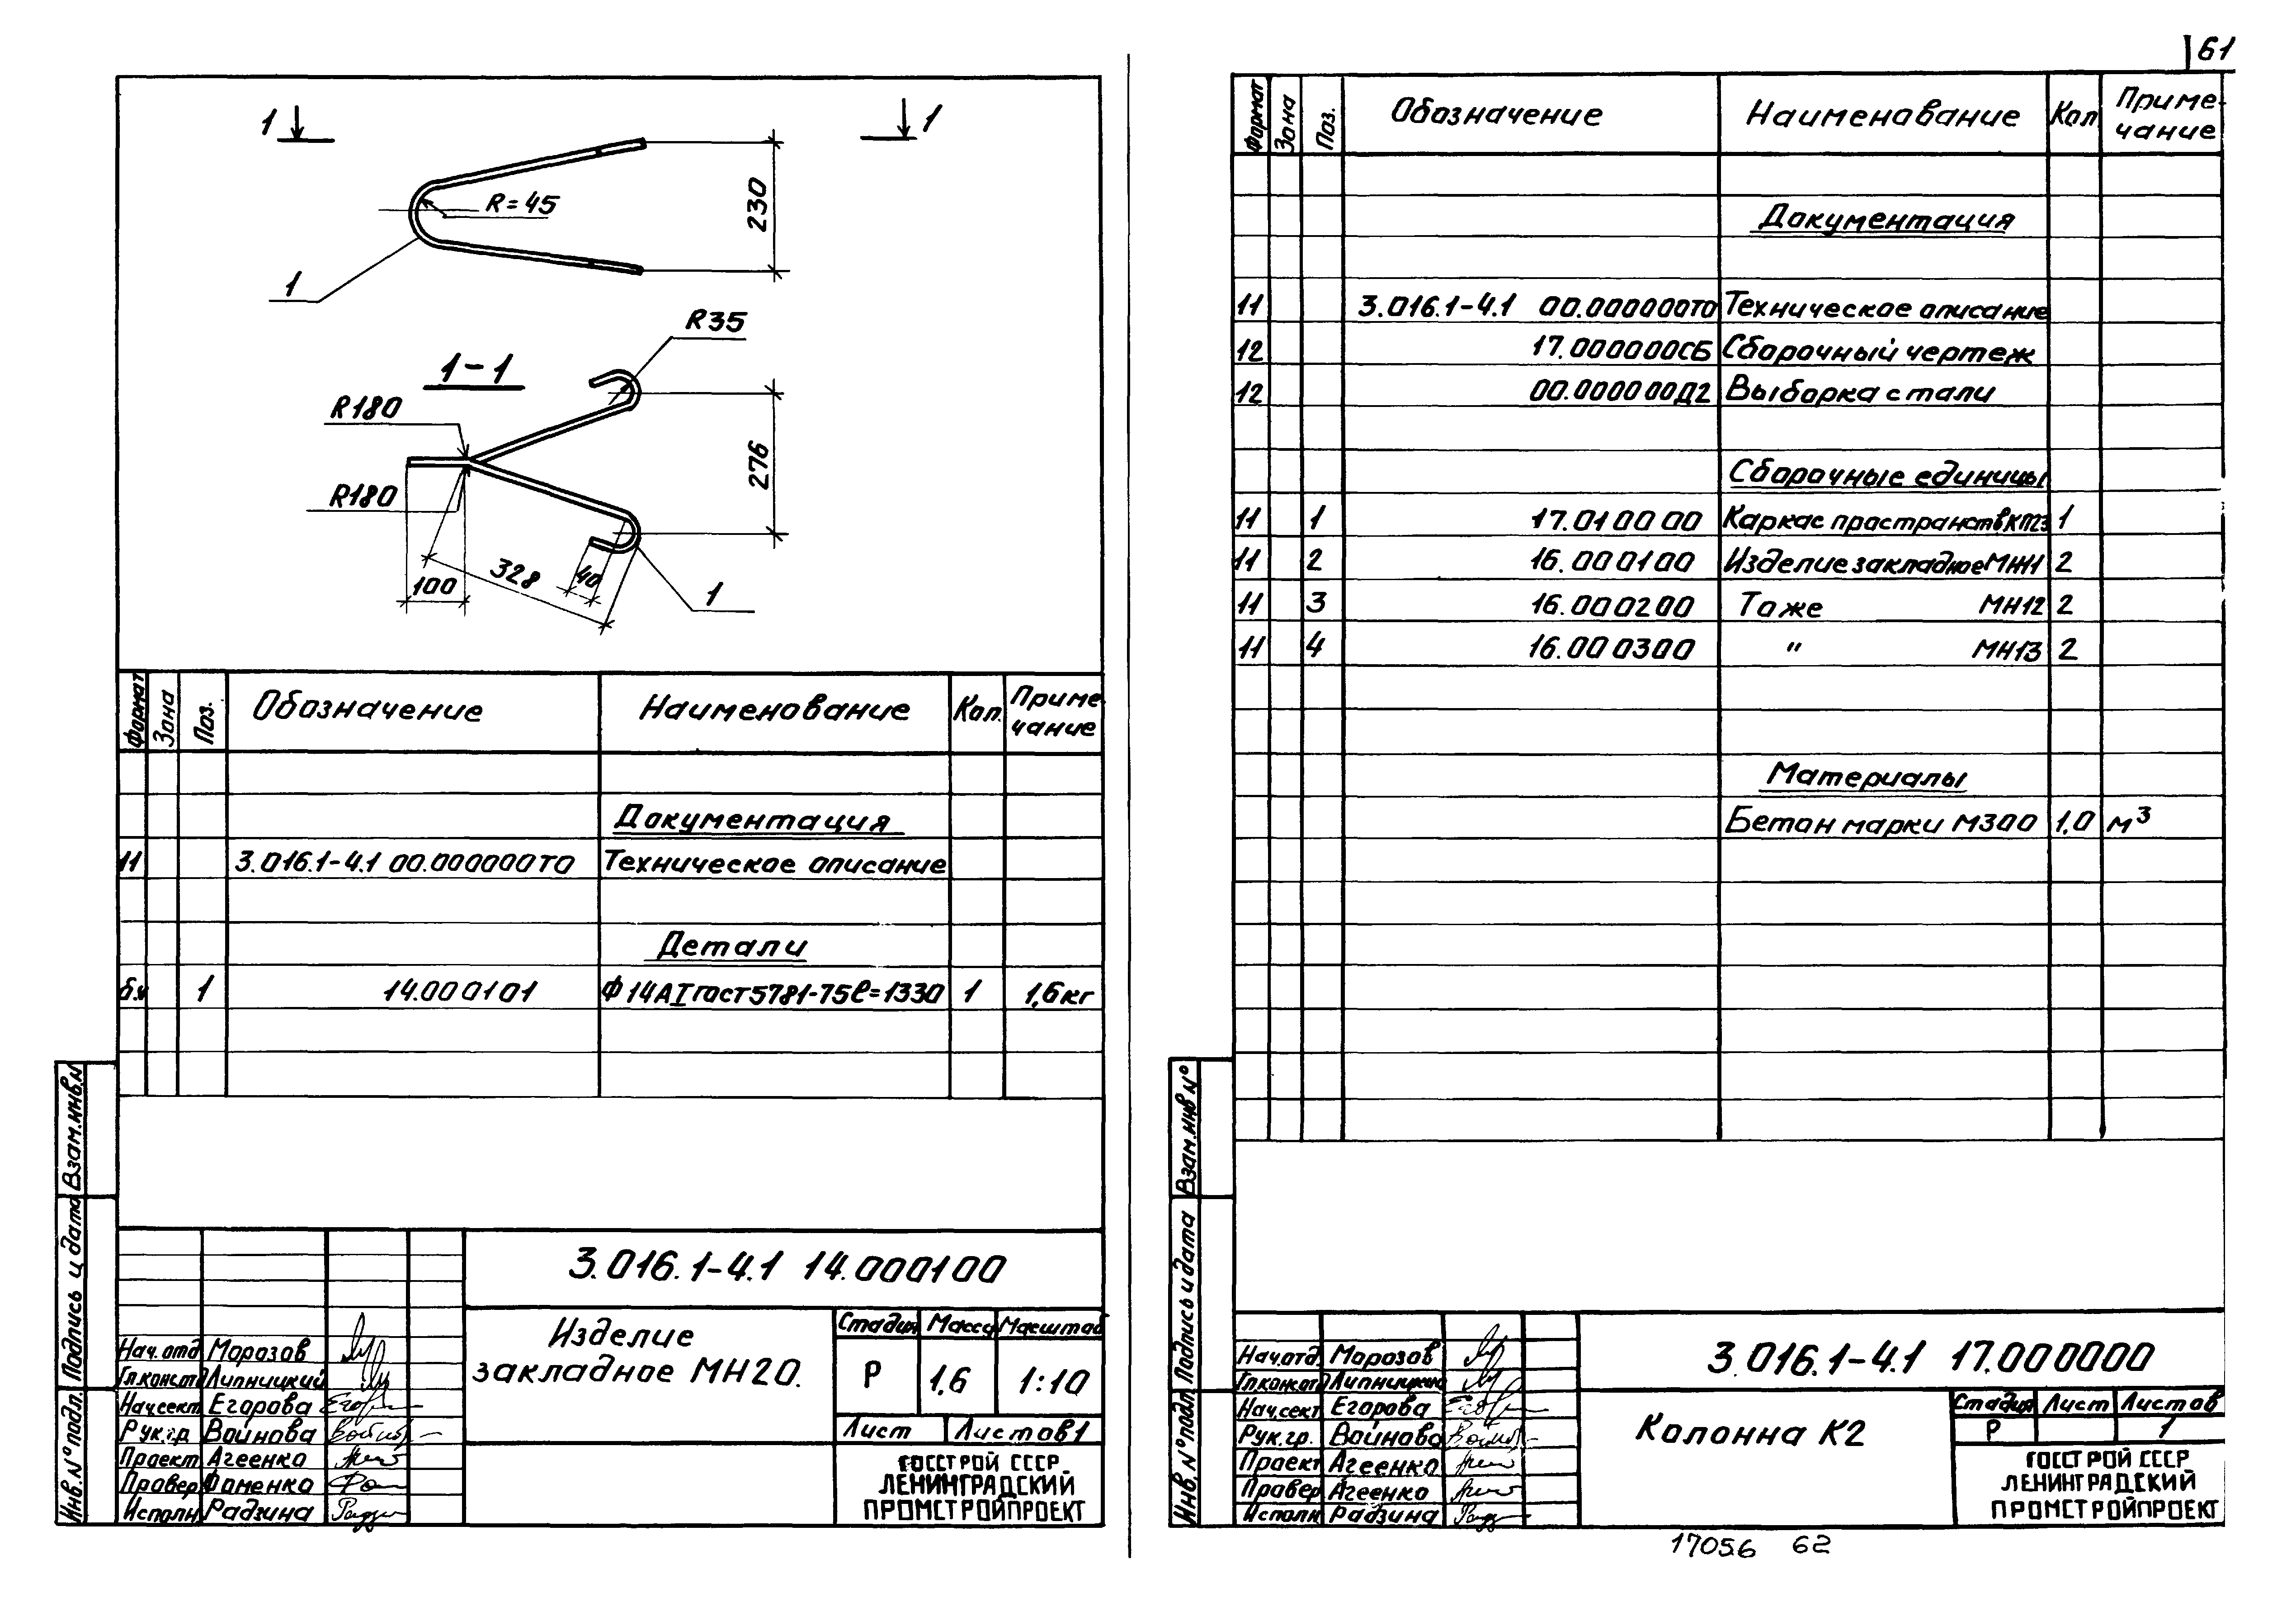 61
1 1
R=45
230
1
R35
1-1
R180
276
R180
328
40
100
1
Формат Зона Поз. Обозначение Наименование Кол. Приме-
чание
Документация
11 3.016.1-4.1 00.000000ТО Техническое описание
Детали
б.ч 1 14.000101 Ф14АI ГОСТ 5781-75 ℓ=1330 1 1,6кг
Взам.инв.N
Подпись и дата
Инв.N° подл.
3.016.1-4.1 14.000100
Изделие
закладное МН20.
Стадия Масса Масштаб
Р 1,6 1:10
Лист Листов 1
ГОССТРОЙ СССР
ЛЕНИНГРАДСКИЙ
ПРОМСТРОЙПРОЕКТ
Нач.отд. Морозов
Гл.констр Липницкий
Нач.сект. Егорова
Рук.гр. Войнова
Проект. Агеенко
Провер. Фоменко
Исполн. Радзина
Формат Зона Поз. Обозначение Наименование Кол. Приме-
чание
Документация
11 3.016.1-4.1 00.000000ТО Техническое описание
12 17.000000СБ Сборочный чертеж
12 00.000000Д2 Выборка стали
Сборочные единицы
11 1 17.010000 Каркас пространств КП23 1
11 2 16.000100 Изделие закладное МН11 2
11 3 16.000200 То же МН12 2
11 4 16.000300 " МН13 2
Материалы
Бетон марки М300 1,0 м³
Взам.инв N°
Подпись и дата
Инв.N° подл.
3.016.1-4.1 17.000000
Колонна К2
Стадия Лист Листов
Р 1
ГОССТРОЙ СССР
ЛЕНИНГРАДСКИЙ
ПРОМСТРОЙПРОЕКТ
Нач.отд. Морозов
Гл.констр Липницкий
Нач.сект. Егорова
Рук.гр. Войнова
Проект. Агеенко
Провер. Агеенко
Исполн. Радзина
17056 62